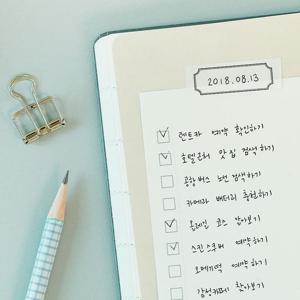 2018.08.13
렌트카 예약 확인하기
호텔 근처 맛집 검색하기
공항버스 노선 검색하기
카메라 배터리 충전하기
올레길 코스 알아보기
스킨스쿠버 예약하기
오메기떡 예약하기
감성카페 찾아보기